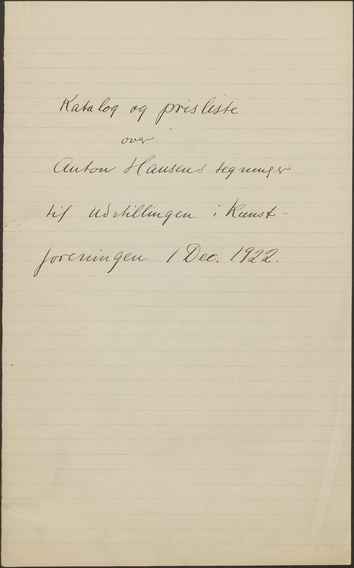 Katalog og prisliste
over
Anton Hansens tegninger
til Udstillingen i Kunst-
foreningen 1 Dec. 1922.